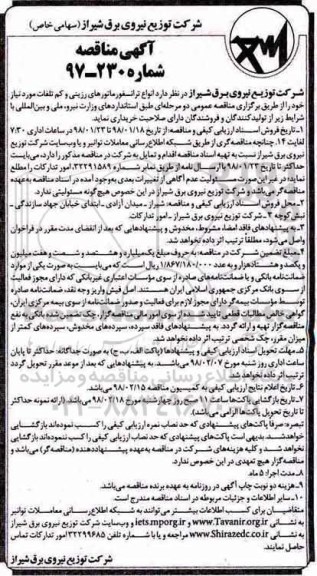 شرکت توزیع نیروی برق شیراز (سهامی خاص)
آگهی مناقصه
شماره ۲۳۰-۹۷
شرکت توزیع نیروی برق شیراز در نظر دارد انواع ترانسفورماتورهای رزینی و کم تلفات مورد نیاز
خود را از طریق برگزاری مناقصه عمومی دو مرحله‌ای طبق استانداردهای وزارت نیرو، ملی و بین‌المللی با
شرایط زیر از تولیدکنندگان و فروشندگان دارای صلاحیت خریداری نماید.
۱-تاریخ فروش اسناد ارزیابی کیفی و مناقصه: از تاریخ ۹۸/۰۱/۱۸ تا ۹۸/۰۱/۲۳ در ساعات اداری ۷/۳۰
لغایت ۱۴. چنانچه مناقصه‌گری از طریق شبکه اطلاع‌رسانی معاملات توانیر و یا وب‌سایت شرکت توزیع
نیروی برق شیراز نسبت به تهیه اسناد مناقصه اقدام و تمایل به شرکت در مناقصه مذکور را دارد، می‌بایست
حداکثر تا تاریخ ۹۸/۰۱/۲۳ با ارسال نامه از طریق نمابر شماره ۳۲۲۹۱۵۸۹ امور تدارکات را مطلع
نماید؛ در غیر این صورت مسئولیت عدم آگاهی از تغییرات بعدی به‌وجود آمده در اسناد مناقصه به‌عهده
مناقصه‌گر می‌باشد و شرکت توزیع نیروی برق شیراز در این خصوص هیچ‌گونه مسئولیتی ندارد.
۲-محل فروش اسناد ارزیابی کیفی و مناقصه: شیراز - میدان آزادی - ابتدای خیابان جهاد سازندگی -
نبش کوچه ۳- شرکت توزیع نیروی برق شیراز - امور تدارکات.
۳-به پیشنهادهای فاقد امضا، مشروط، مخدوش و پیشنهادهایی که بعد از انقضای مدت مقرر در فراخوان
واصل می‌شود، مطلقاً ترتیب اثر داده نخواهد شد.
۴-مبلغ تضمین شرکت در مناقصه: به حروف مبلغ یک میلیارد و هشتصد و شصت و هفت میلیون
و یکصد و هشتاد هزار و به عدد ۱/۸۶۷/۱۸۰/۰۰۰ ریال است که می‌بایست به صورت یکی از موارد
ضمانت‌نامه بانکی و یا ضمانت‌نامه‌های صادره از سوی مؤسسات اعتباری غیربانکی که دارای مجوز فعالیت
از سوی بانک مرکزی جمهوری اسلامی ایران هستند، اصل فیش واریز وجه نقد، ضمانت‌نامه صادره
توسط مؤسسات بیمه‌گر دارای مجوز لازم برای فعالیت و صدور ضمانت‌نامه از سوی بیمه مرکزی ایران،
گواهی خالص مطالبات قطعی تایید شده از سوی امور مالی مناقصه‌گزار، چک تضمین شده بانکی به نفع
مناقصه‌گزار تهیه و ارائه گردد. به پیشنهادهای فاقد سپرده، سپرده‌های مخدوش، سپرده‌های کمتر از
میزان مقرر، چک شخصی ترتیب اثر داده نخواهد شد.
۵-مهلت تحویل اسناد ارزیابی کیفی و پیشنهادها (پاکت الف، ب، ج) به صورت جداگانه: حداکثر تا پایان
ساعت اداری روز شنبه مورخ ۹۸/۰۲/۰۷ می‌باشد. به پیشنهادهایی که بعد از موعد مقرر تحویل گردد
ترتیب اثر داده نخواهد شد.
۶-تاریخ اعلام نتایج ارزیابی کیفی به کمیسیون مناقصه ۹۸/۰۲/۱۵ می‌باشد.
۷-تاریخ بازگشایی پاکت‌ها ساعت ۱۱ صبح روز چهارشنبه مورخ ۹۸/۰۲/۱۸ می‌باشد. (ارائه نمونه حداکثر
تا تاریخ تحویل پاکت‌ها الزامی می‌باشد).
تبصره: صرفاً پاکت‌های پیشنهادی که حد نصاب نمره ارزیابی کیفی را کسب نموده‌اند بازگشایی
خواهد شد. بدیهی است پاکت‌های پیشنهادی که حد نصاب ارزیابی کیفی را کسب ننموده‌اند بازگشایی
نخواهد شد و کلیه هزینه‌های شرکت در مناقصه به عهده پیشنهاددهنده (مناقصه‌گر) می‌باشد و
مناقصه‌گزار هیچ تعهدی در این خصوص ندارد.
۸-مدت اجرا: ۵ ماه
۹-هزینه دو نوبت چاپ آگهی در روزنامه به عهده برنده مناقصه می‌باشد.
۱۰-سایر اطلاعات و جزئیات مربوطه در اسناد مناقصه مندرج است.
متقاضیان می‌توانند برای کسب اطلاعات بیشتر به شبکه‌های اطلاع‌رسانی معاملات توانیر
به نشانی www.Tavanir.org.ir و iets.mporg.ir و وب‌سایت شرکت توزیع نیروی برق شیراز
به نشانی www.Shirazedc.co.ir مراجعه و یا با شماره تلفن ۳۲۲۹۹۶۸۵ امور تدارکات تماس
حاصل نمایند.
شرکت توزیع نیروی برق شیراز